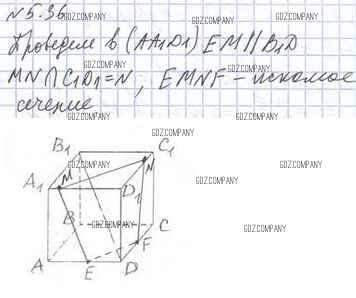 №5.36
GDZ.COMPANY
GDZ.COMPANY
GDZ.COMPANY
Проведем в (AA1D1) EM || B1D
GDZ.COMPANY
GDZ.COMPANY
MN ∩ C1D1 = N, EMNF – искомое
GDZ.COMPANY
GDZ.COMPANY
сечение
GDZ.COMPANY
GDZ.COMPANY
GDZ.COMPANY
B1
C1
GDZ.COMPANY
M
N
A1
D1
GDZ.COMPANY
GDZ.COMPANY
B
GDZ.COMPANY
C
F
A
E
D
GDZ.COMPANY